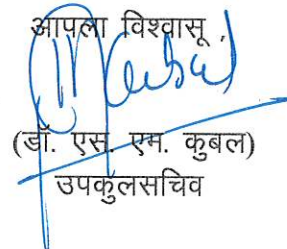 आपला विश्वासू,
(डॉ. एस. एम. कुबल)
उपकुलसचिव